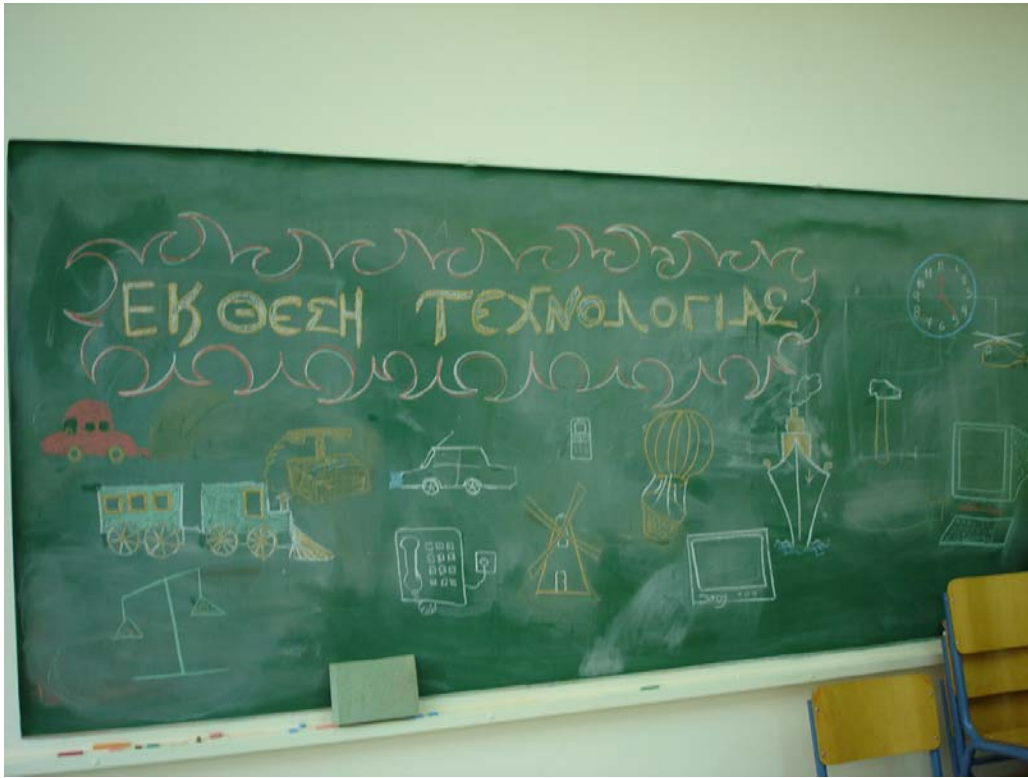 ΕΚΘΕΣΗ ΤΕΧΝΟΛΟΓΙΑΣ